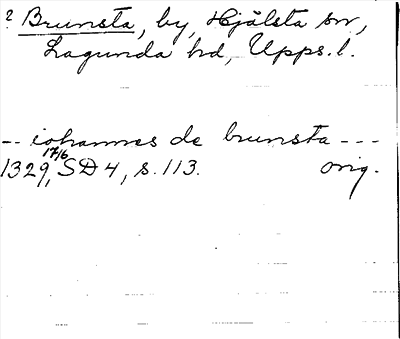 ? Brunsta, by, Hjälsta sn,
Lagunda hd, Upps. l.
-- iohannes de brunsta ---
1329 17/6, SD 4, s. 113. orig.